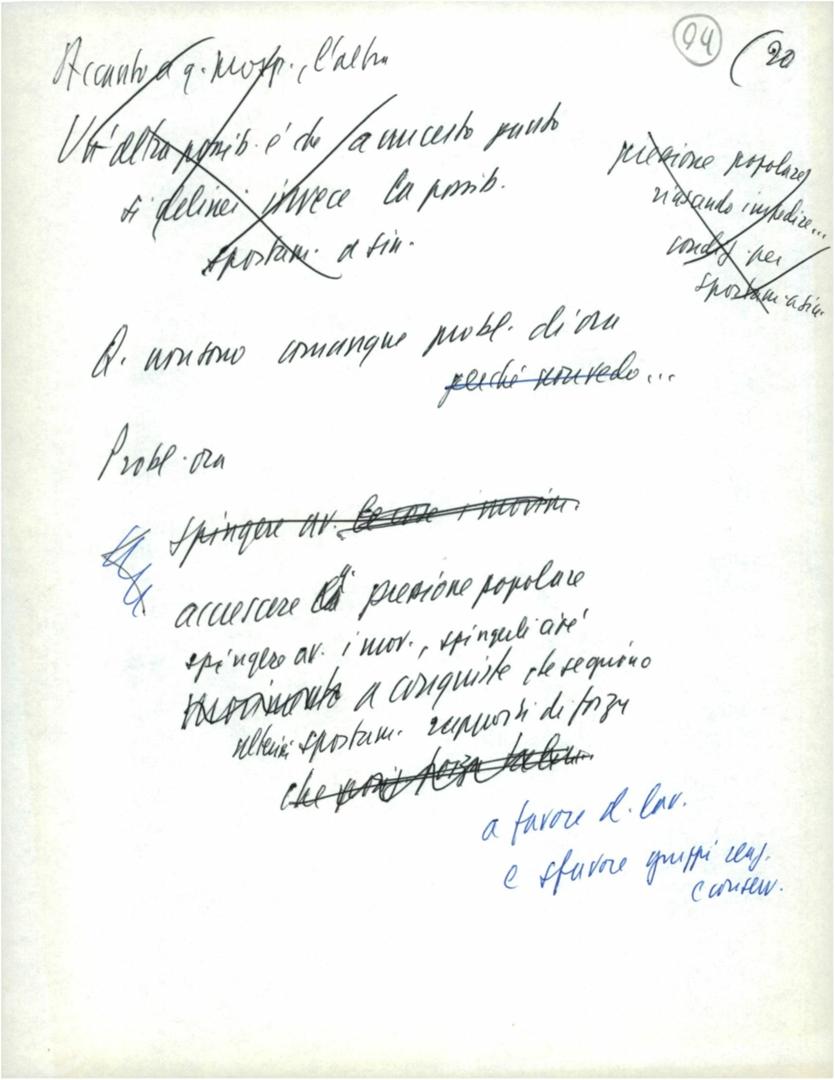 94 (20
Accanto a q. prosp., l'altra
Un'altra possib. è che a un certo punto
si delinei invece la possib.
spostam. a sin.
pressione popolare
riuscendo impedire...
condiz. per
spostam. a sin.
Q. non sono comunque probl. di ora
perché non vedo...
Probl. ora
spingere av. le cose i movim.
accrescere pressione popolare
spingere av. i mov., spingerli cioè
movimento a conquiste che segnino
ulteriori spostam. rapporti di forza
che
a favore d. lav.
e sfavore gruppi reaz.
e conserv.